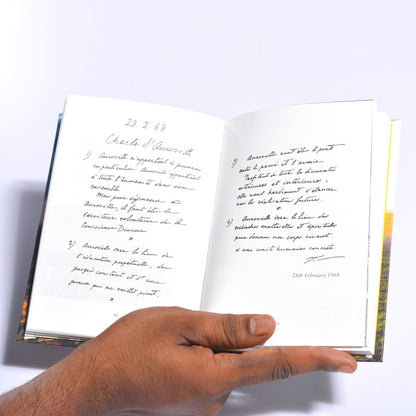 28.2.68
Charte d'Auroville
1) Auroville n'appartient à personne
en particulier. Auroville appartient
à toute l'humanité dans son
ensemble.
Mais pour séjourner à
Auroville, il faut être le
serviteur volontaire de la
Conscience Divine.
2) Auroville sera le lieu de
l'éducation perpétuelle, du
progrès constant et d'une
jeunesse qui ne vieillit point.
3) Auroville veut être le pont
entre le passé et l'avenir.
Profitant de toutes les découvertes
extérieures et intérieures, elle
veut hardiment s'élancer
vers les réalisations futures.
4) Auroville sera le lieu des
recherches matérielles et spirituelles
pour donner un corps vivant
à une unité humaine concrète.
28th February 1968